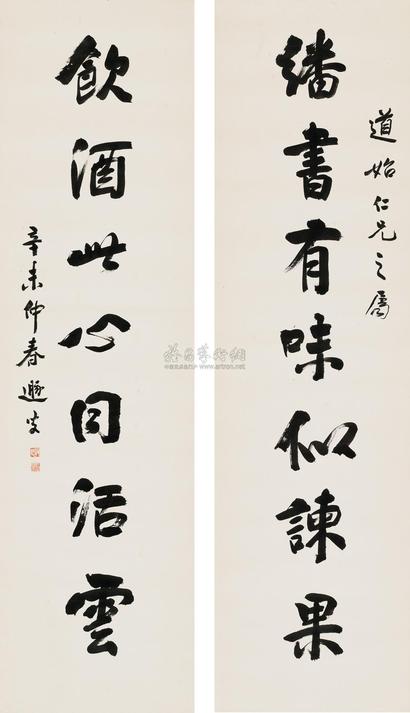 道始仁兄之屬
繙書有味似諫果
飲酒此心同活雲
辛未仲春遯叟
雅昌藝術網
www.artron.net